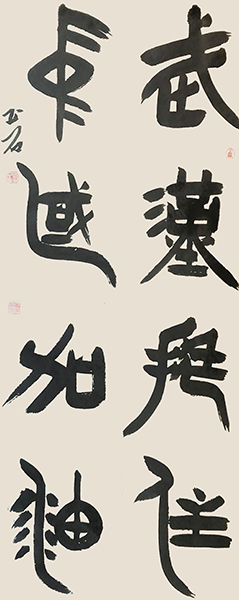 武漢挺住
中國加油